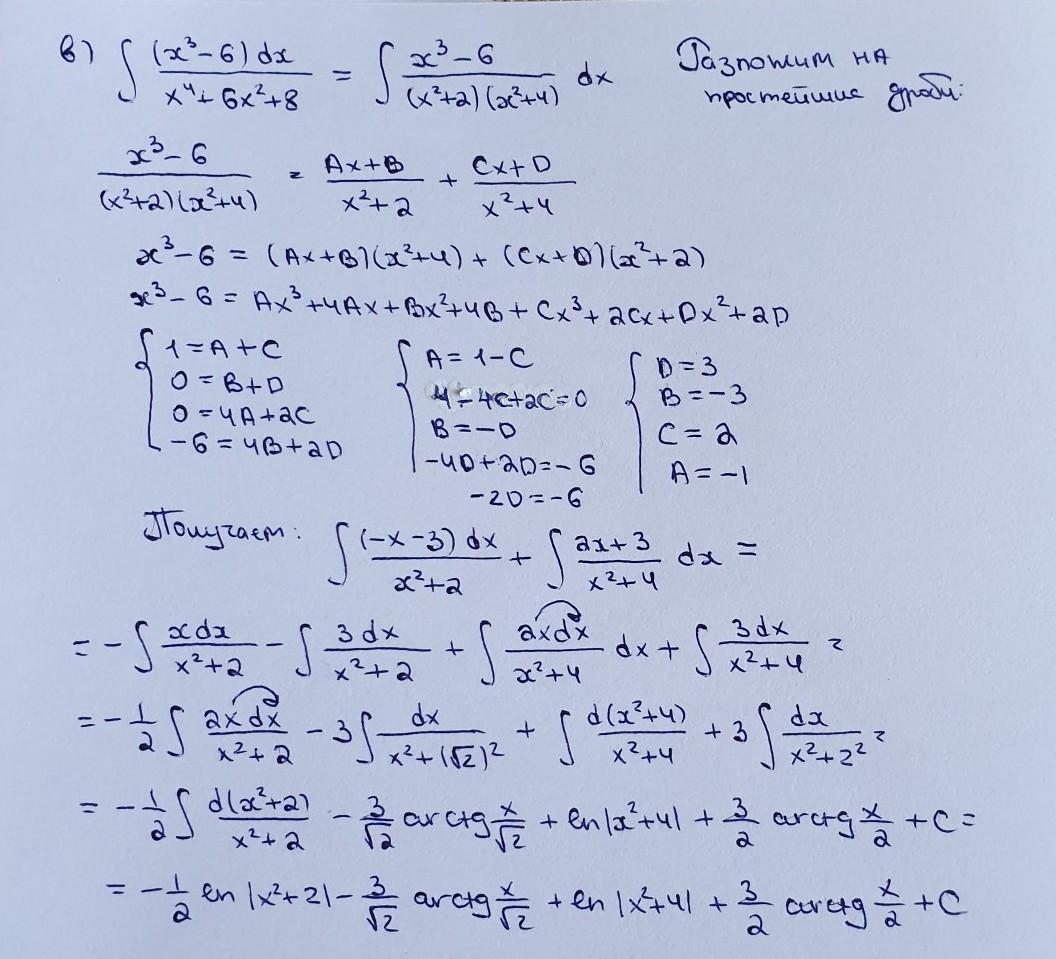 в) ∫ (x³-6)dx / (x⁴+6x²+8) = ∫ (x³-6) / ((x²+2)(x²+4)) dx Разложим на
простейшие дроби:
(x³-6) / ((x²+2)(x²+4)) = (Ax+B) / (x²+2) + (Cx+D) / (x²+4)
x³-6 = (Ax+B)(x²+4) + (Cx+D)(x²+2)
x³-6 = Ax³+4Ax+Bx²+4B+Cx³+2Cx+Dx²+2D
{ 1=A+C { A=1-C { D=3
0=B+D 4-4C+2C=0 B=-3
0=4A+2C B=-D C=2
-6=4B+2D -4D+2D=-6 A=-1
-2D=-6
Получаем: ∫ (-x-3)dx / (x²+2) + ∫ (2x+3) / (x²+4) dx =
= -∫ xdx / (x²+2) - ∫ 3dx / (x²+2) + ∫ 2xdx / (x²+4) dx + ∫ 3dx / (x²+4) =
= -1/2 ∫ 2xdx / (x²+2) - 3∫ dx / (x²+(√2)²) + ∫ d(x²+4) / (x²+4) + 3∫ dx / (x²+2²) =
= -1/2 ∫ d(x²+2) / (x²+2) - 3/√2 arctg x/√2 + ln|x²+4| + 3/2 arctg x/2 + C =
= -1/2 ln|x²+2| - 3/√2 arctg x/√2 + ln|x²+4| + 3/2 arctg x/2 + C